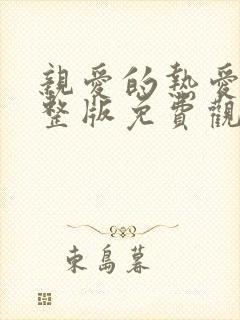 親愛的熱愛
整版免費觀
東島暮